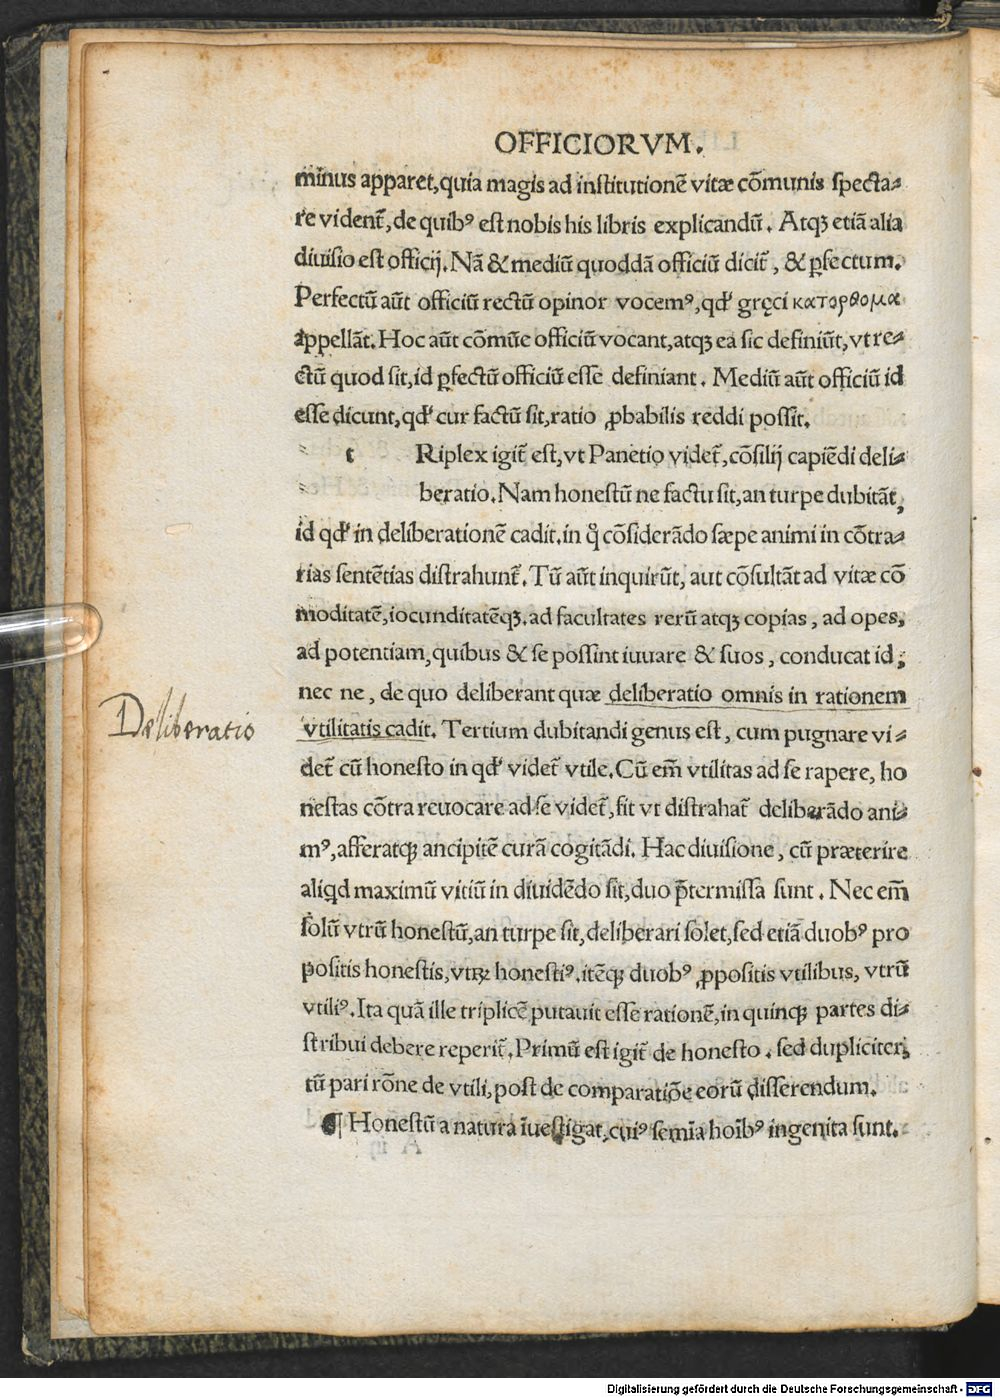 OFFICIORVM.
minus apparet, quia magis ad institutionē vitæ cōmunis specta⸗
re vident̃, de quibꝰ est nobis his libris explicandū. Atqꝫ etiā alia
diuisio est officij. Nā & mediū quoddā officiū dicit̃, & ꝑfectum.
Perfectū aūt officiū rectū opinor vocemꝰ, qd' gręci κατορθομα
appellāt. Hoc aūt cōmūe officiū vocant, atqꝫ ea sic definiūt, vt re⸗
ctū quod sit, id ꝑfectū officiū esse definiant. Mediū aūt officiū id
esse dicunt, qd' cur factū sit, ratio ꝓbabilis reddi possit.
t Riplex igit̃ est, vt Panetio videt̃, cōsilij capiēdi deli⸗
beratio. Nam honestū ne factu sit, an turpe dubitāt,
id qd' in deliberationē cadit. in q̊ cōsiderādo sæpe animi in cōtra⸗
rias sentētias distrahunt̃. Tū aūt inquirūt, aut cōsultāt ad vitæ cō
moditatē, iocunditatēqꝫ. ad facultates rerū atqꝫ copias, ad opes,
ad potentiam, quibus & se possint iuuare & suos, conducat id,
nec ne, de quo deliberant quæ deliberatio omnis in rationem
Deliberatio
vtilitatis cadit. Tertium dubitandi genus est, cum pugnare vi⸗
det̃ cū honesto in qd' videt̃ vtile. Cū em̄ vtilitas ad se rapere, ho
nestas cōtra reuocare ad se videt̃, fit vt distrahat̃ deliberādo ani⸗
mꝰ, afferatqꝫ ancipitē curā cogitādi. Hac diuisione, cū præterire
aliqd maximū vitiū in diuidēdo sit, duo p̄termissa sunt. Nec em̄
solū vtrū honestū, an turpe sit, deliberari solet, sed etiā duobꝰ pro
positis honestis, vtꝝ honestiꝰ. itēqꝫ duobꝰ ꝓpositis vtilibus, vtrū
vtiliꝰ. Ita quā ille triplicē putauit esse rationē, in quinqꝫ partes di⸗
stribui debere reperit̃. Primū est igit̃ de honesto. sed dupliciter,
tū pari rōne de vtili, post de comparatiōe eorū disserendum.
¶ Honestū a natura īuestigat, cuiꝰ semīa hoībꝰ ingenita sunt.
Digitalisierung gefördert durch die Deutsche Forschungsgemeinschaft - DFG